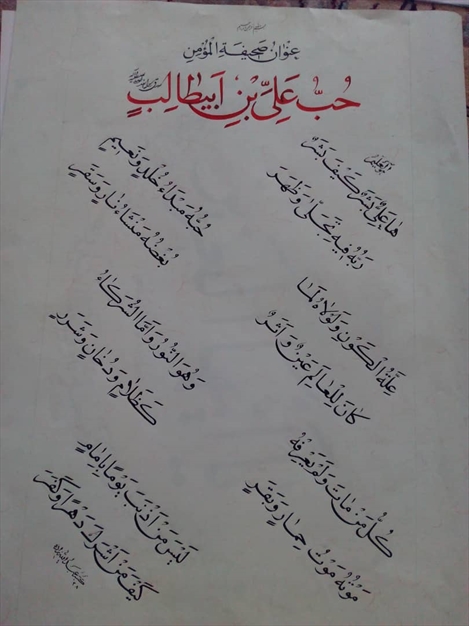 عنوان صحيفة المؤمن
حُبُّ عَلِيِّ بْنِ اَبيطالِبٍ
هو العليم
ها عَلِيٌّ بَشَرٌ كَيْفَ بَشَرْ
رَبُّهُ فيهِ تَجَلّىٰ وَ ظَهَرَ
حُبُّهُ مَبْدَاءُ خُلْدٍ وَ نَعيمٍ
بُغْضُهُ مَنْشَاءُ نارٍ وَ سَقَرٍ
عِلَّةُ الْكَوْنِ وَ لَوْلاهُ لَما
كانَ لِلْعالَمِ عَيْنٌ وَ اَثَرٌ
وَ هُوَ النُّورُ وَ اَمَّا الشُّرَكاءُ
كَظَلامٍ وَ دُخانٍ وَ شَرَرٍ
كُلُّ مَنْ ماتَ وَ لَمْ يَعْرِفْهُ
مَوْتُهُ مَوْتُ حِمارٍ وَ بَقَرٍ
لَيْسَ مَنْ اَذْنَبَ يَوْماً بِاِمامٍ
كَيْفَ مَنْ اَشْرَكَ دَهْراً وَ كَفَرَ